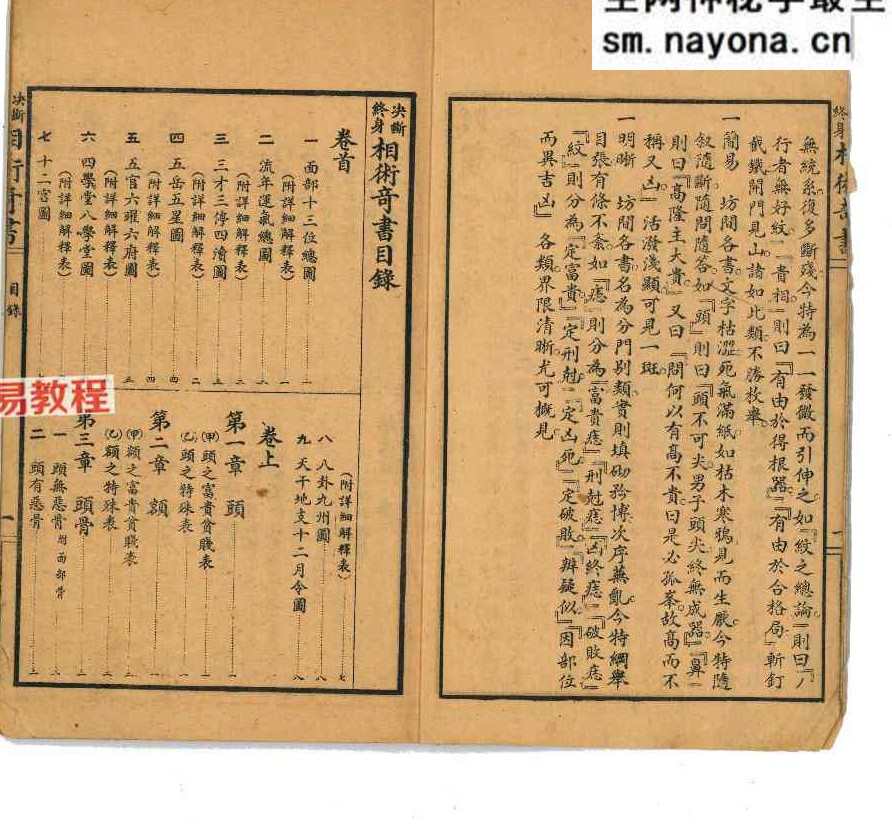 sm.nayona.cn
易教程
無統系復多斷殘今特為一一發微而引伸之如『紋之總論』則曰『八
行者無好紋』『貴相』則曰『有由於得根器』『有由於合格局』斬釘
截鐵開門見山諸如此類不勝枚舉
一簡易 坊間各書文字枯澀死氣滿紙如枯木寒鴉見而生厭今特隨
叙隨斷隨問隨答如『頭』則曰『頭不可尖男子頭尖終無成器』『鼻』
則曰『高隆主大貴』又曰『問何以有高不貴曰是必孤峯故高而不
稱又凶』活潑淺顯可見一斑
一明晰 坊間各書名為分門別類實則填砌矜博次序蕪亂今特綱舉
目張有條不紊如『痣』則分為『富貴痣』『刑尅痣』『凶終痣』『破敗痣』
『紋』則分為『定富貴』『定刑尅』『定凶死』『定破敗』『辨疑似』『因部位
而異吉凶』各類界限清晰尤可概見
決斷終身相術奇書目錄
卷首
一 面部十三位總圖 一
(附詳細解釋表) 一
二 流年運氣總圖
(附詳細解釋表)
三 三才三停四瀆圖
(附詳細解釋表) 二
四 五岳五星圖 四
(附詳細解釋表) 四
五 五官六曜六府圖 五
(附詳細解釋表)
六 四學堂八學堂圖
(附詳細解釋表)
七 十二宮圖
(附詳細解釋表) 七
八 八卦九州圖 八
九 天干地支十二月令圖 八
卷上
第一章 頭 一
(甲)頭之富貴貧賤表 一
(乙)頭之特殊表 一
第二章 額
(甲)額之富貴貧賤表
(乙)額之特殊表
第三章 頭骨
一 頭無惡骨附面部骨
二 頭有惡骨
目錄
一